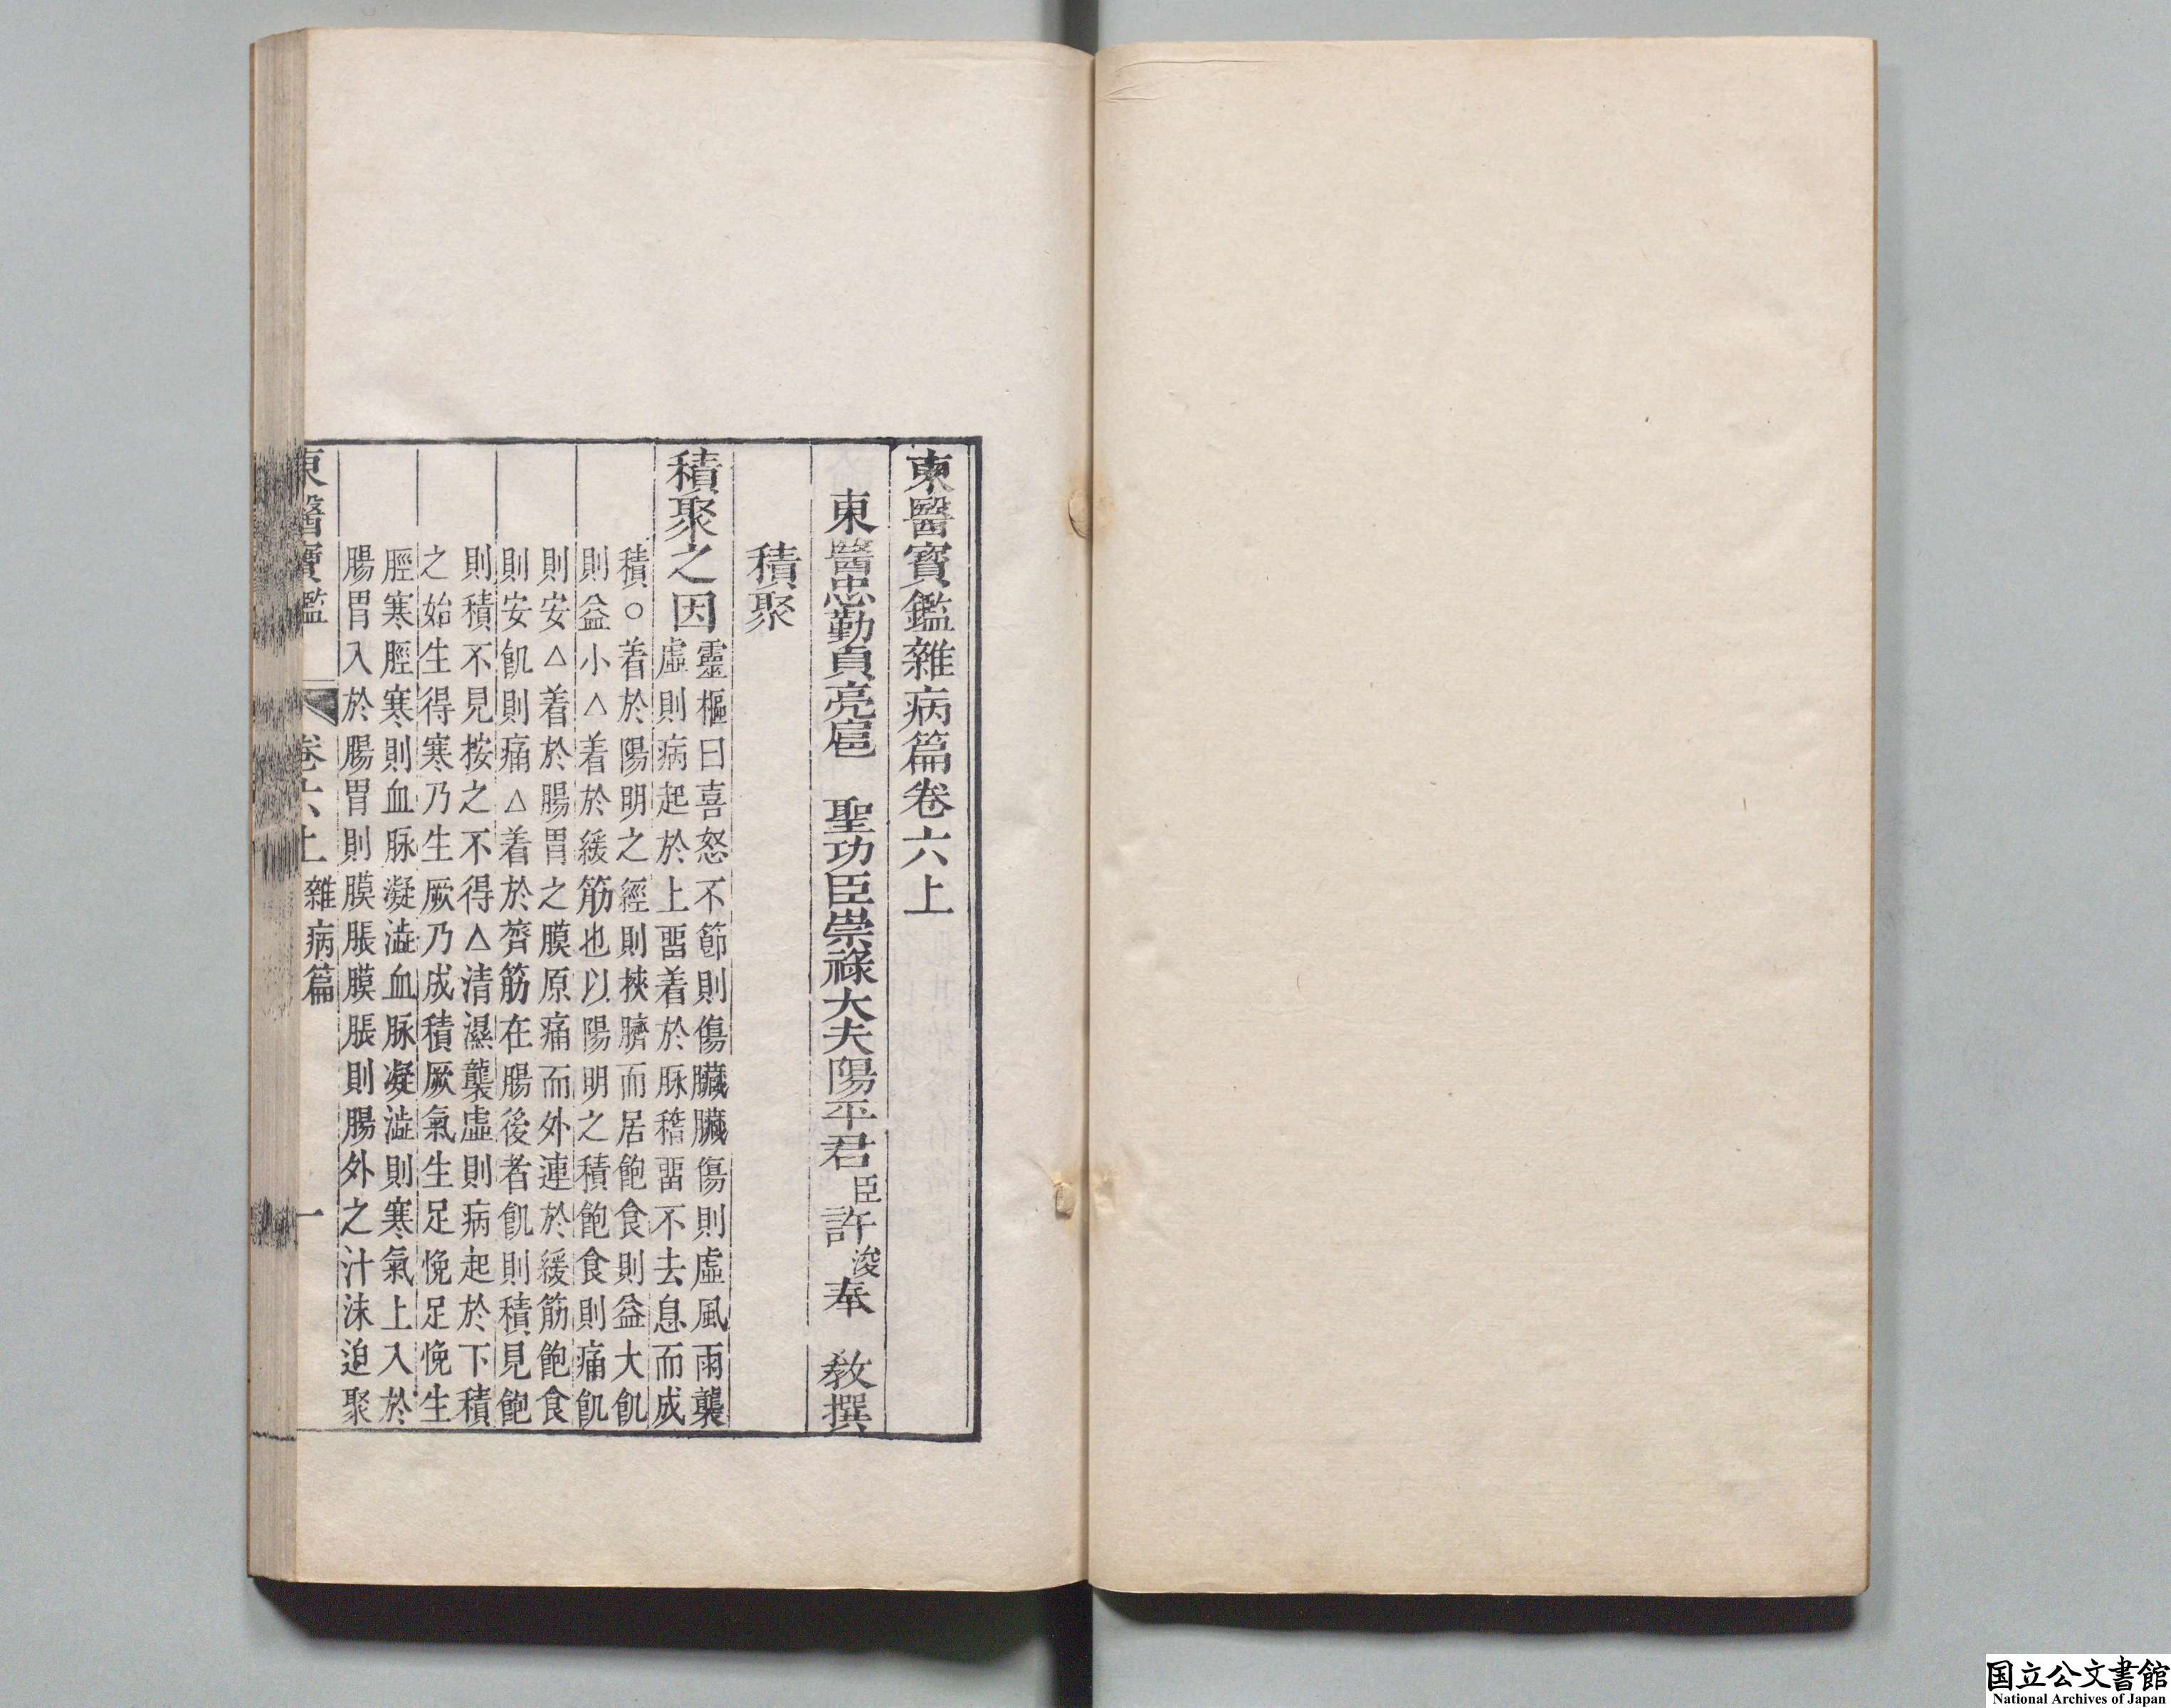 東醫寳鑑雜病篇卷六上
東醫忠勤貞亮扈　聖功臣崇祿大夫陽平君臣許浚奉　敎撰
積聚
積聚之因
靈樞曰喜怒不節則傷臟臟傷則虛風雨襲
虛則病起於上畱着於脉稽畱不去息而成
積○着於陽明之經則挾臍而居飽食則益大飢
則益小△着於緩筋也以陽明之積飽食則痛飢
則安△着於腸胃之膜原痛而外連於緩筋飽食
則安飢則痛△着於膂筋在腸後者飢則積見飽
則積不見按之不得△清濕襲虛則病起於下積
之始生得寒乃生厥乃成積厥氣生足悗足悗生
脛寒脛寒則血脉凝澁血脉凝澁則寒氣上入於
腸胃入於腸胃則膜脹膜脹則腸外之汁沫迫聚
東醫寶鑑　卷六上　雜病篇　一
国立公文書館
National Archives of Japan